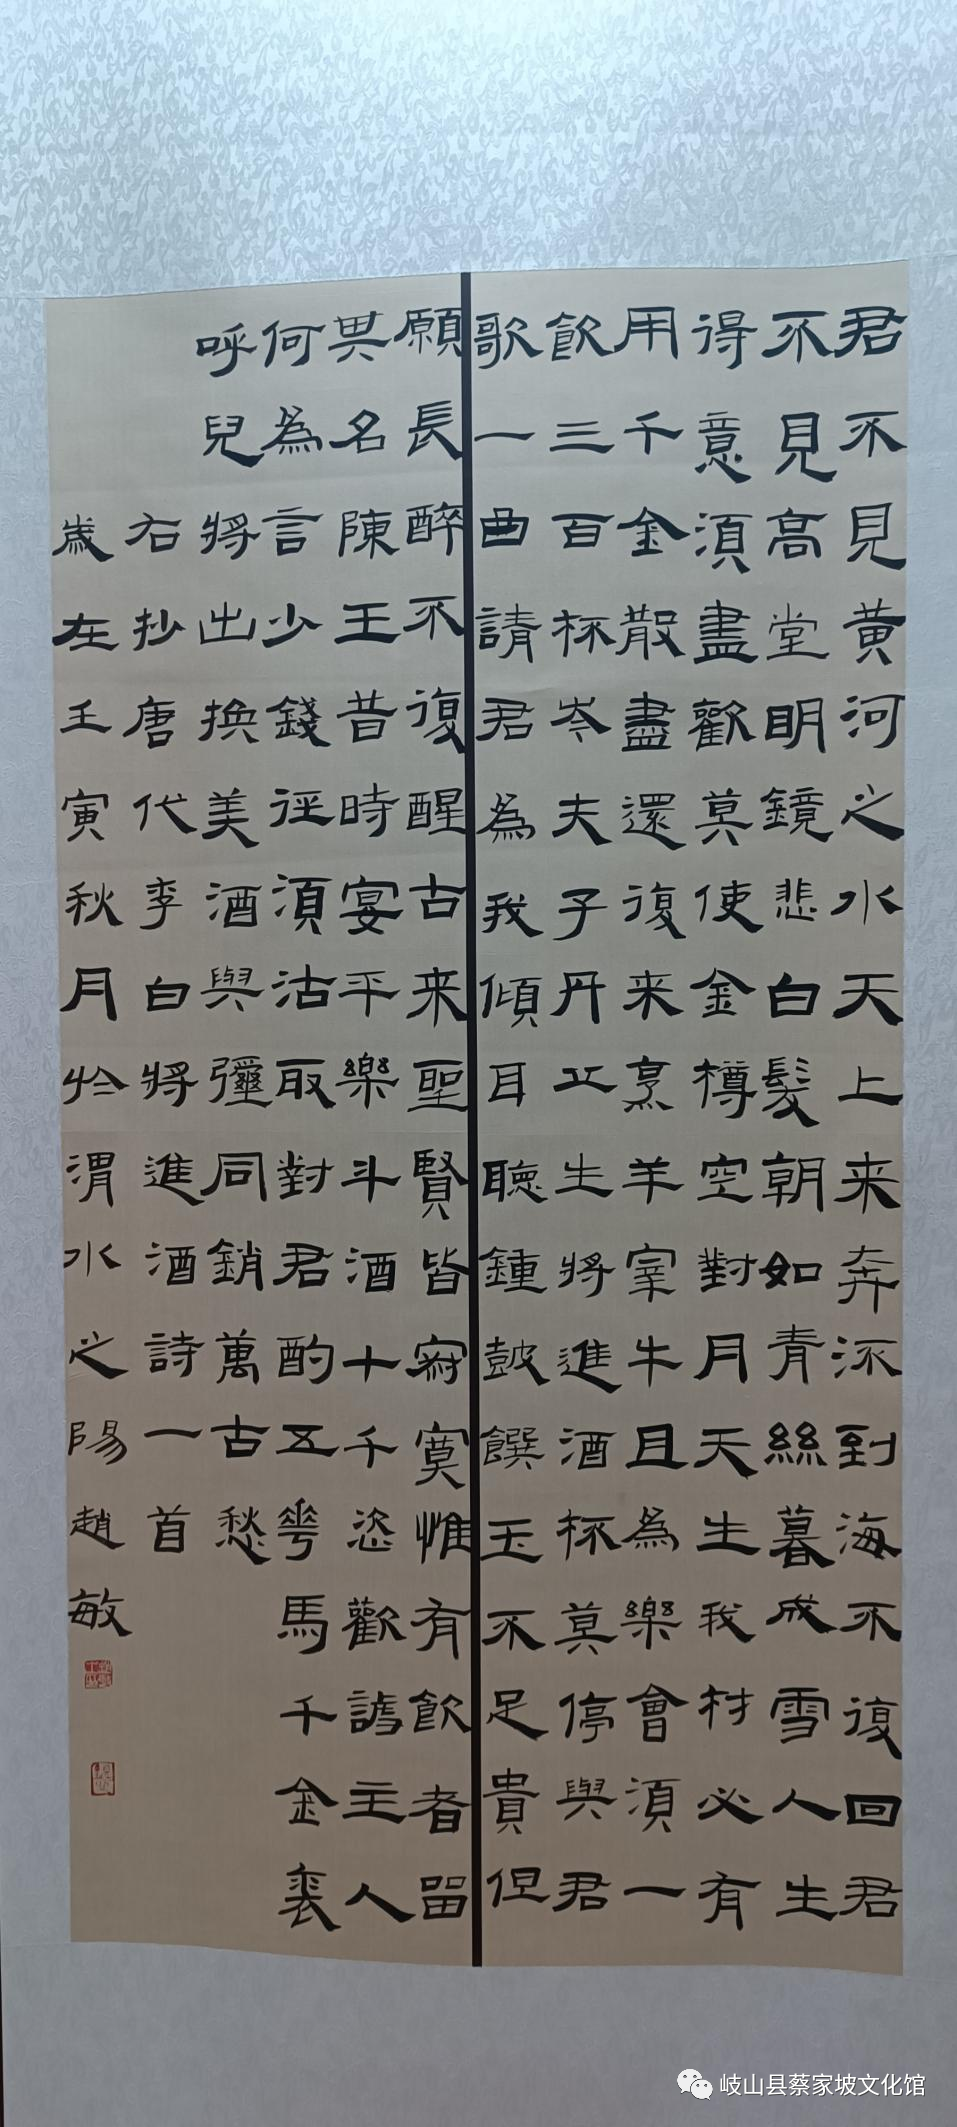 君不見黄河之水天上来奔流到海不復回君
不見高堂明鏡悲白髮朝如青絲暮成雪人生
得意須盡歡莫使金樽空對月天生我材必有
用千金散盡還復来烹羊宰牛且為樂會須一
飲三百杯岑夫子丹丘生將進酒杯莫停與君
歌一曲請君為我傾耳聽鍾鼓饌玉不足貴但
願長醉不復醒古来聖賢皆寂寞惟有飲者留
其名陳王昔時宴平樂斗酒十千恣歡謔主人
何為言少錢徑須沽取對君酌五花馬千金裘
呼兒將出換美酒與爾同銷萬古愁
右抄唐代李白將進酒詩一首
歲在壬寅秋月於渭水之陽趙敏
岐山县蔡家坡文化馆